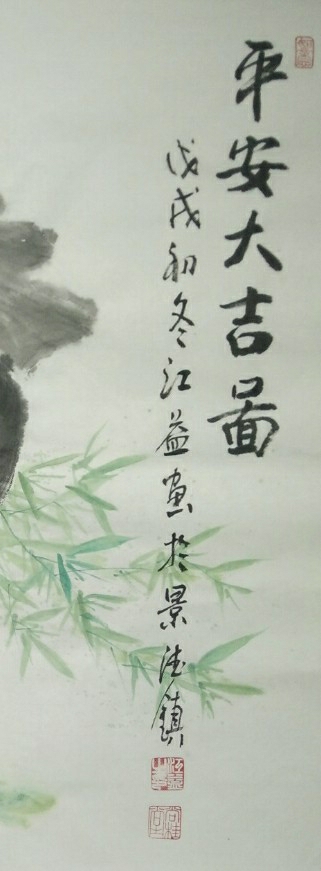 平安大吉啚
戊戌初冬江益画於景德镇